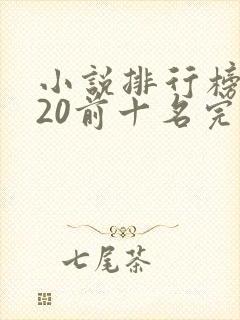 小說排行榜
20前十名完
七尾茶